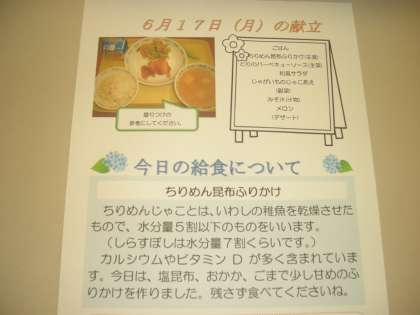 6月17日（月）の献立
ごはん
ちりめん昆布ふりかけ(主菜)
とりのバーベキューソース(主菜)
和風サラダ
じゃがいものじゃこあえ
(副菜)
みそ汁(汁物)
メロン
(デザート)
盛りつけの
参考にしてください。
今日の給食について
ちりめん昆布ふりかけ
ちりめんじゃことは、いわしの稚魚を乾燥させた
もので、水分量5割以下のものをいいます。
（しらすぼしは水分量7割くらいです。）
カルシウムやビタミンDが多く含まれていま
す。今日は、塩昆布、おかか、ごまで少し甘めのふ
りかけを作りました。残さず食べてくださいね。